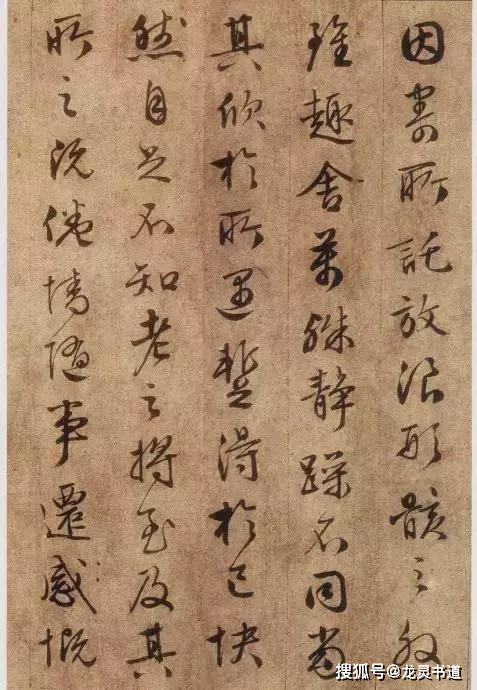 因寄所託放浪形骸之外
雖趣舍萬殊静躁不同當
其欣於所遇暫得於己快
然自足不知老之將至及其
所之既倦情隨事遷感慨
搜狐号@龙灵书道